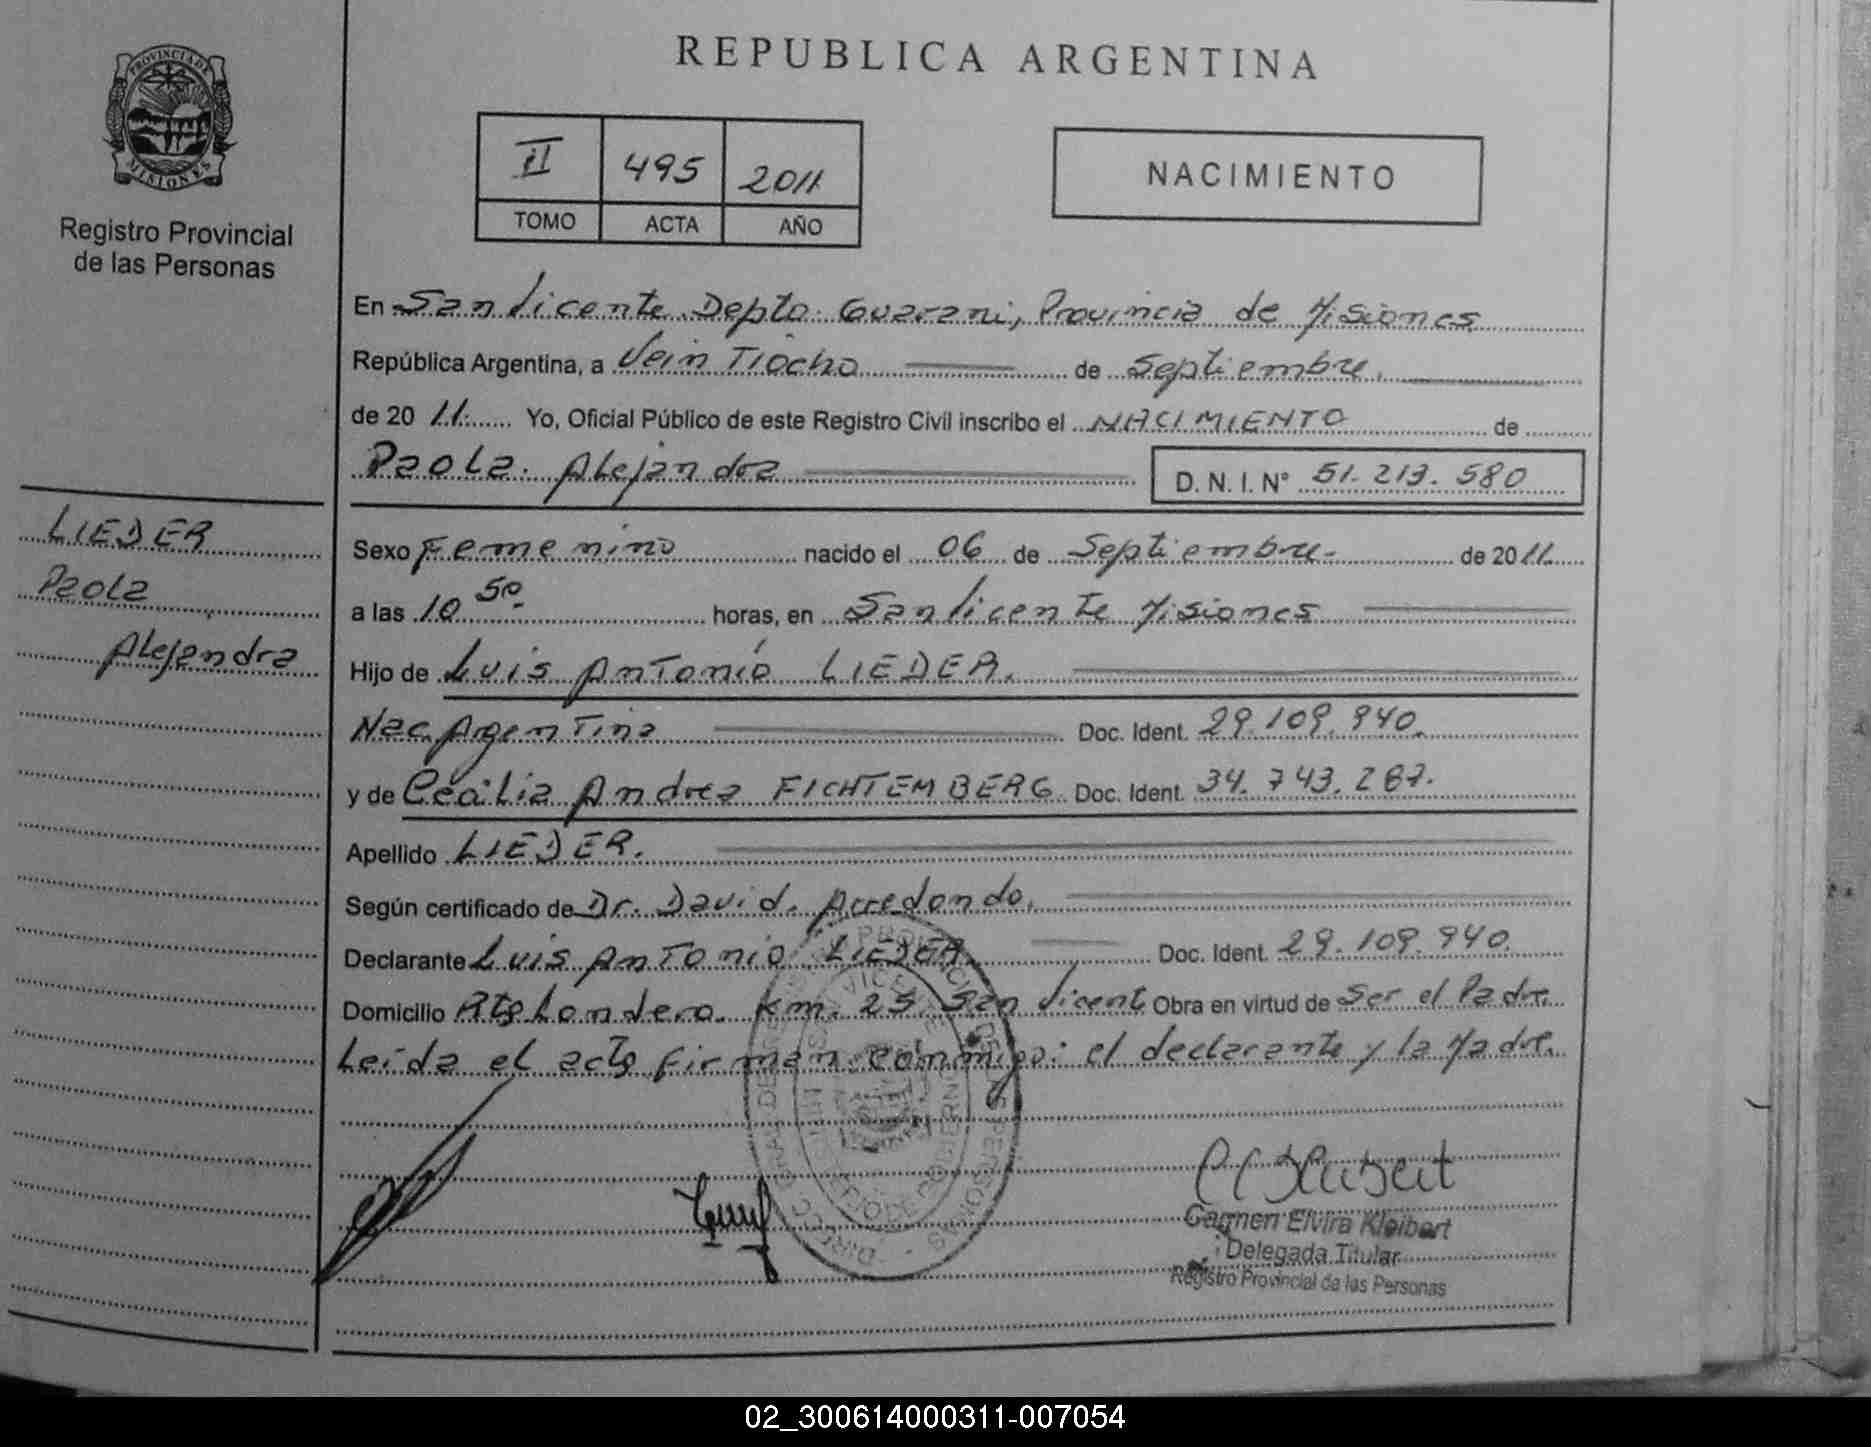 REPUBLICA ARGENTINA
PROVINCIA DE
MISIONES
Registro Provincial
de las Personas
II 495 2011
TOMO ACTA AÑO
NACIMIENTO
En San Vicente Depto. Guarani, Provincia de Misiones
República Argentina, a Vein Tiocho de Septiembre.
de 20 11. Yo, Oficial Público de este Registro Civil inscribo el NACIMIENTO de
Paola Alejandra D. N. I. N° 51.213.580
LIEDER
Paola
Alejandra
Sexo Femenino nacido el 06 de Septiembre. de 2011.
a las 10 50. horas, en San Vicente Misiones
Hijo de Luis Antonio LIEDER.
Nac. Argentina Doc. Ident. 29.109.940.
y de Cecilia Andrea FICHTEMBERG Doc. Ident. 34.743.287.
Apellido LIEDER.
Según certificado de Dr. David Arredondo.
Declarante Luis Antonio LIEDER. Doc. Ident. 29.109.940.
Domicilio Londero Km. 25 San Vicent Obra en virtud de Ser el Padre.
Leída el acta firman conmigo: el declarante y la Madre.
Carmen Elvira Kleibert
Delegada Titular
Registro Provincial de las Personas
02_300614000311-007054